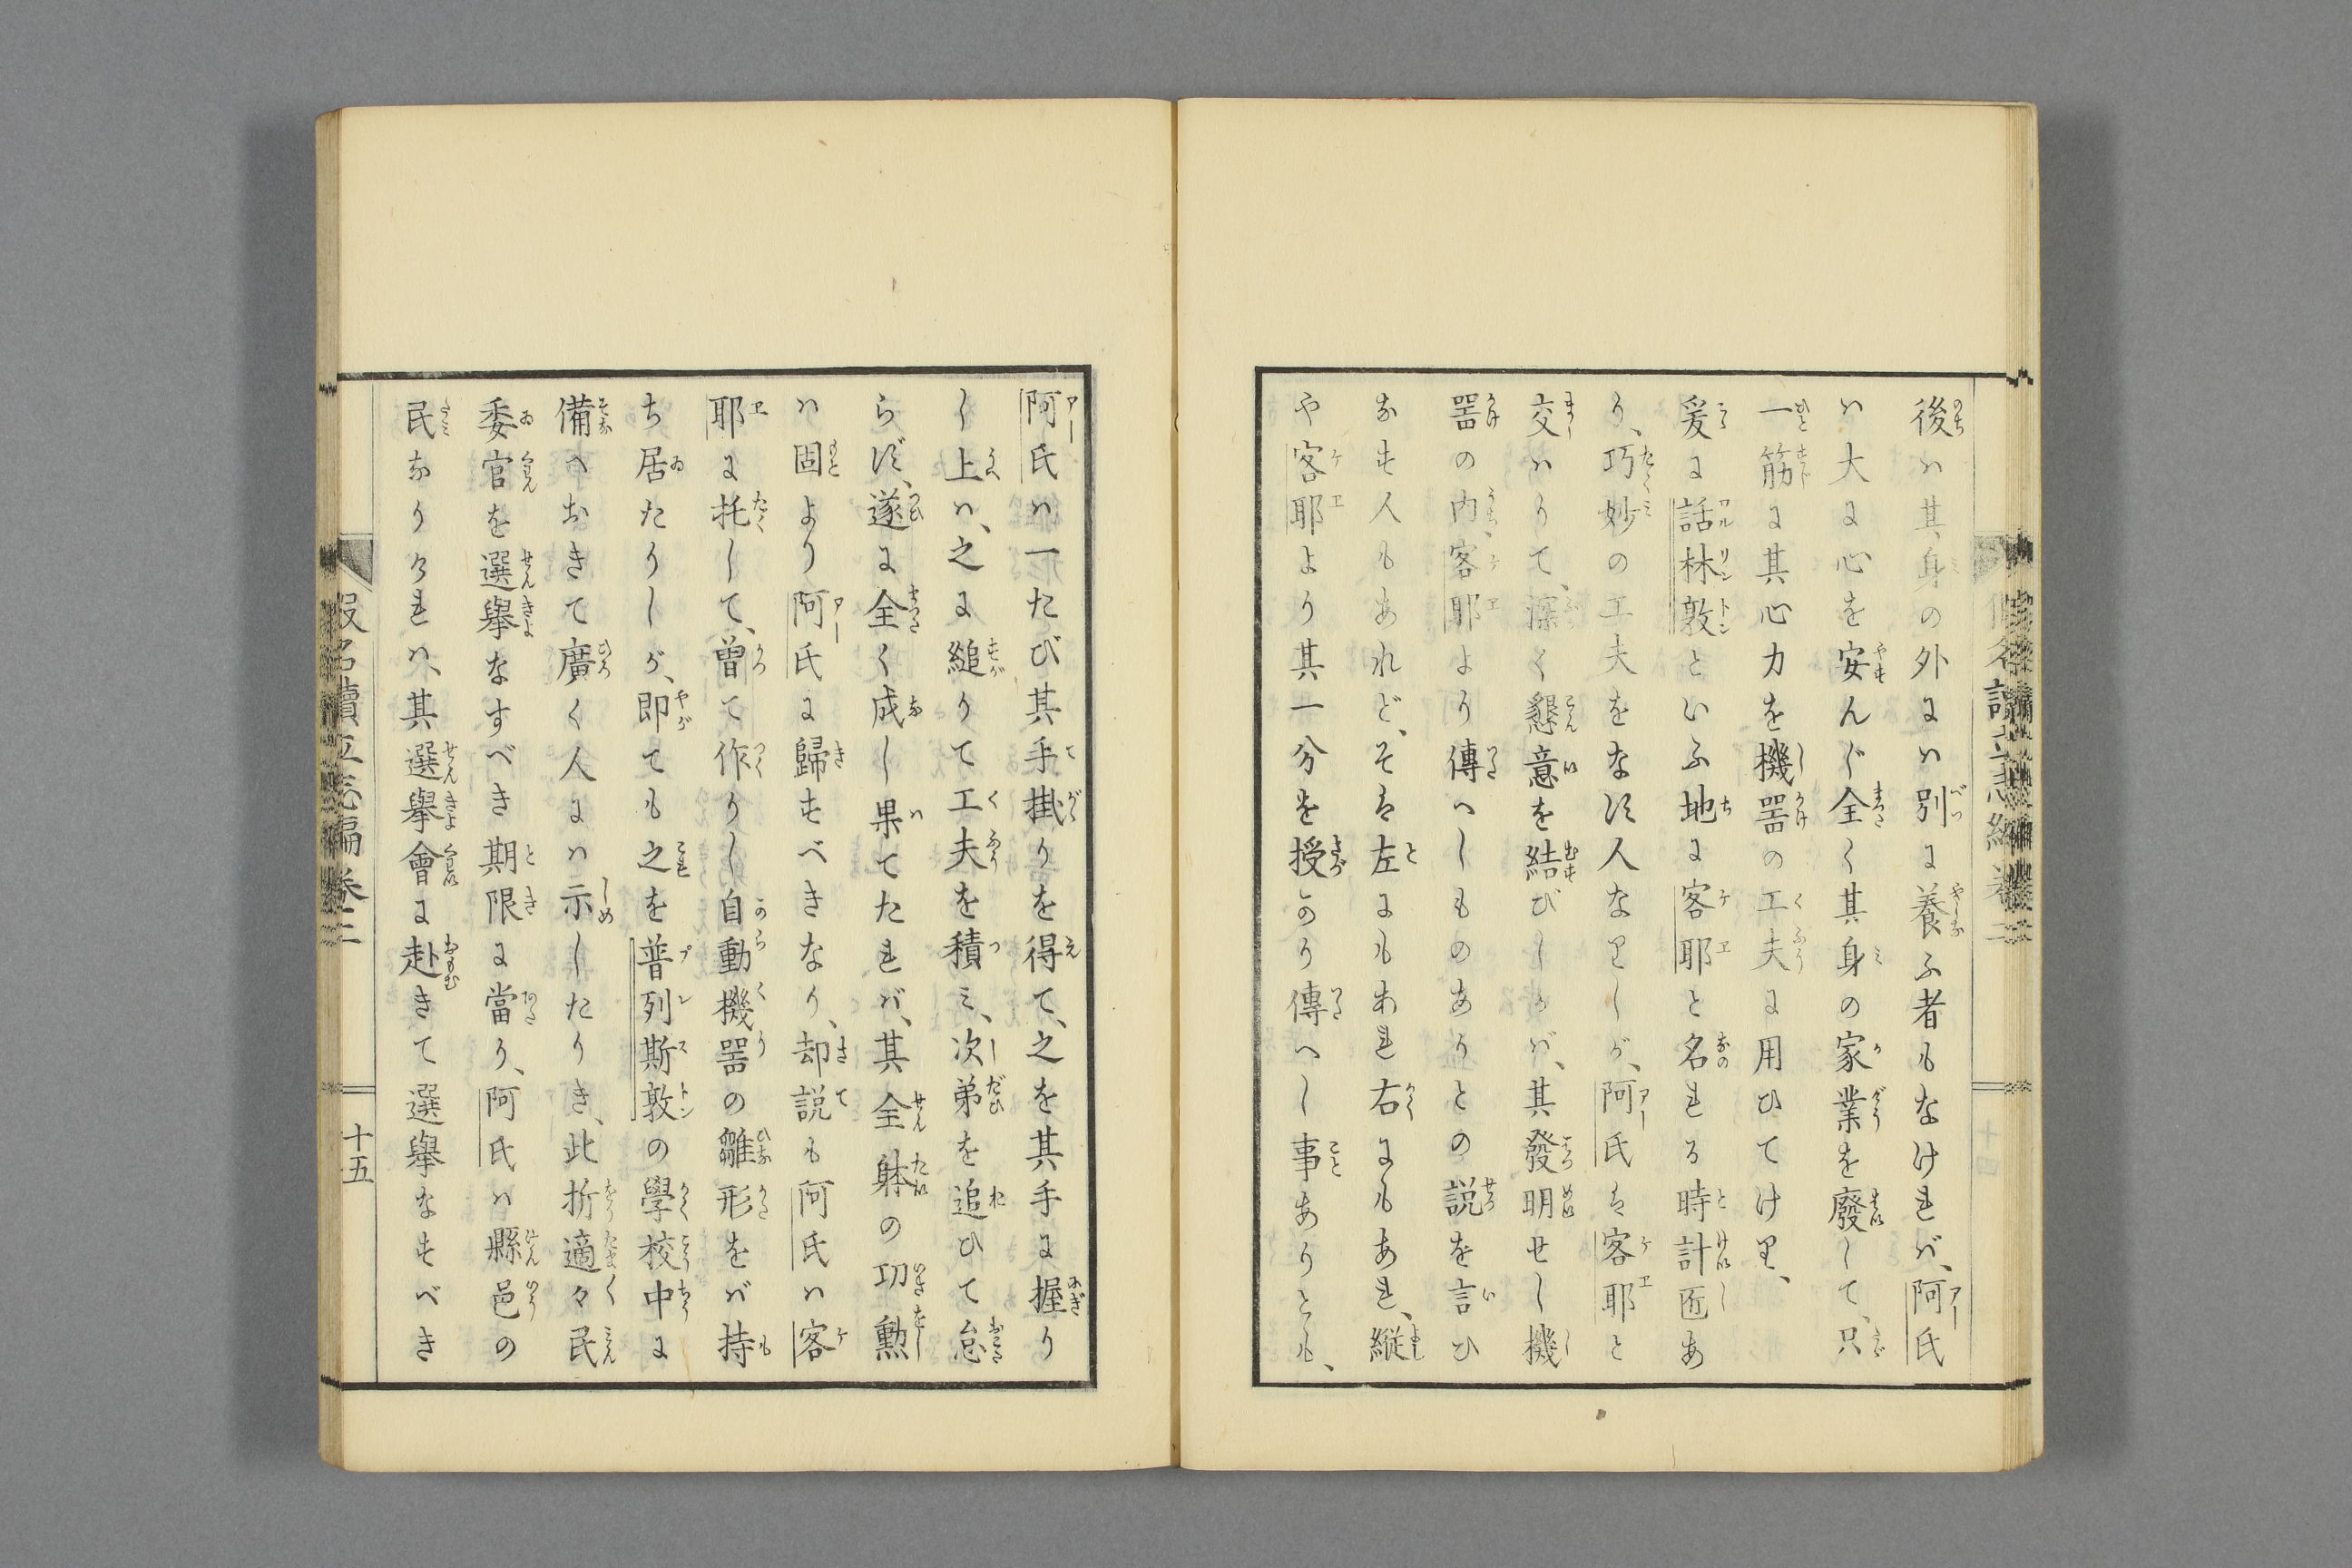 後ハ其身の外にハ別に養ふ者もなければ、阿氏
ハ大に心を安んじ全く其身の家業を廢して、只
一筋に其心力を機噐の工夫に用ひてけり、
爰に話林敦といふ地に客耶と名れる時計匠あ
り、巧妙の工夫をなす人なりしが、阿氏は客耶と
交ハりて、深く懇意を結びしかバ、其發明せし機
噐の内、客耶より傳へしものありとの説を言ひ
なす人もあれど、そは左にもあれ右にもあれ、縦
や客耶より其一分を授かり傳へし事ありとも、
阿氏ハ一たび其手掛りを得て、之を其手に握り
し上ハ、之に縋りて工夫を積ミ、次弟を追ひて怠
らず、遂に全く成し果てたれバ、其全躰の功勲
ハ固より阿氏に歸すべきなり、却説も阿氏ハ客
耶に托して、曽て作りし自動機噐の雛形をバ持
ち居たりしが、即ても之を普列斯敦の學校中に
備へおきて廣く人にハ示したりき、此折適々民
委官を選擧なすべき期限に當り、阿氏ハ縣邑の
民なりけれハ、其選擧會に赴きて選擧なすべき
假名讀立志編卷二
十四
十五